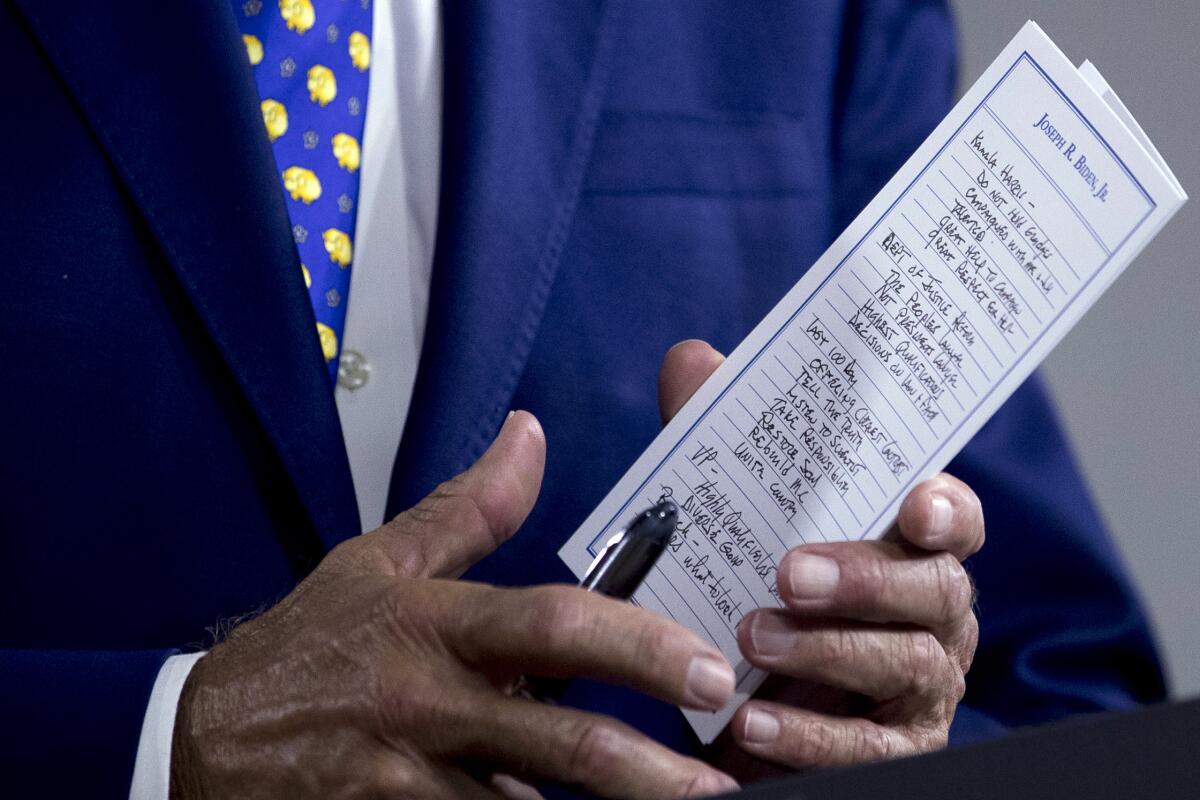 JOSEPH R. BIDEN, JR.
KAMALA HARRIS -
DO NOT HOLD GRUDGES
CAMPAIGNED WITH ME & JILL
TALENTED
GREAT HELP TO CAMPAIGN
GREAT RESPECT FOR HER
DEPT OF JUSTICE REFORM
THE PEOPLES LAWYER
NOT PRESIDENTS LAWYER
HIGHEST QUALIFICATIONS
DECISIONS ON LAW & FACT
LAST 100 DAY
OFFERING CLEAREST CONTRAST
TELL THE TRUTH
LISTEN TO SCIENTIST
TAKE RESPONSIBILITY
RESTORE SOUL
REBUILD M.C
UNITE COUNTRY
VP - Highly Qualified
DIVERSE GROUP
what to look